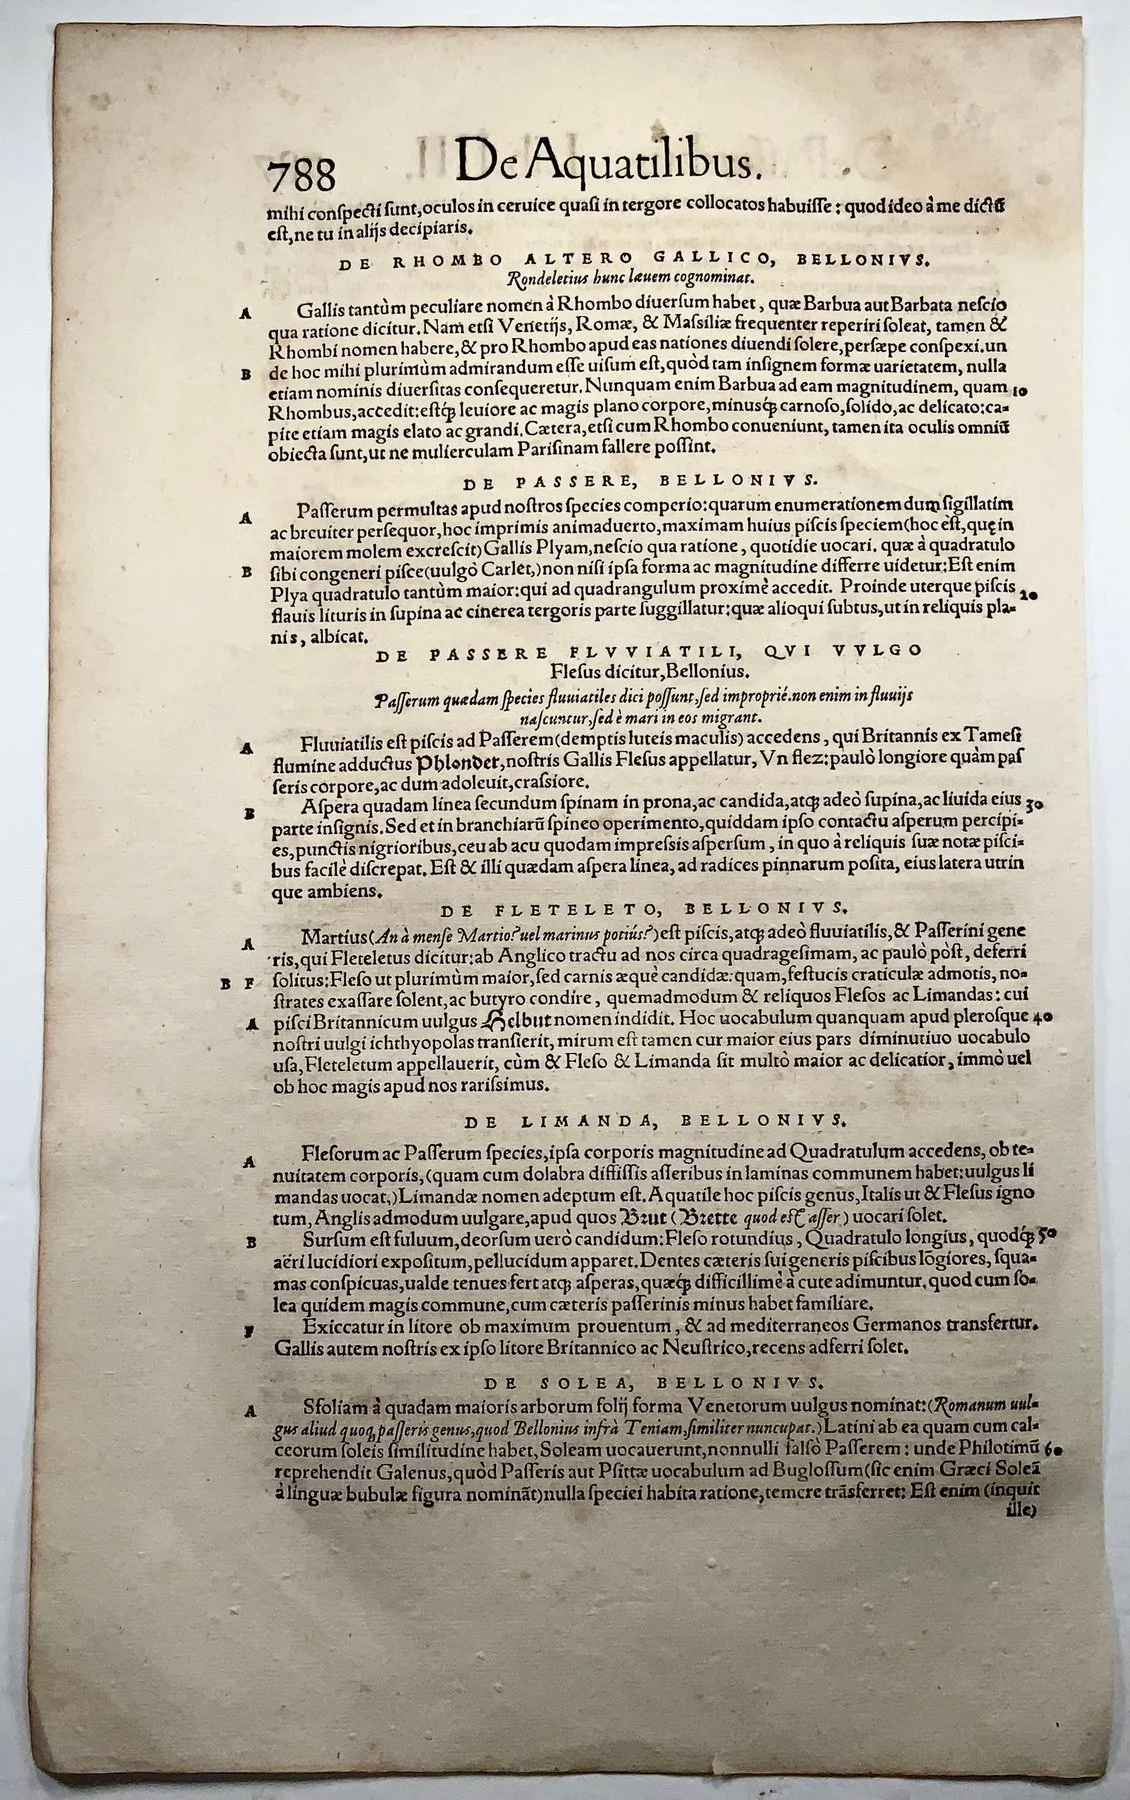 788 De Aquatilibus.
mihi conspecti sunt, oculos in ceruice quasi in tergore collocatos habuisse: quod ideo à me dictū
est, ne tu in alijs decipiaris.
DE RHOMBO ALTERO GALLICO, BELLONIVS.
Rondeletius hunc læuem cognominat.
A Gallis tantùm peculiare nomen à Rhombo diuersum habet, quæ Barbua aut Barbata nescio
qua ratione dicitur. Nam etsi Venetijs, Romæ, & Massiliæ frequenter reperiri soleat, tamen &
Rhombi nomen habere, & pro Rhombo apud eas nationes diuendi solere, persæpe conspexi, un
B de hoc mihi plurimùm admirandum esse uisum est, quòd tam insignem formæ uarietatem, nulla
etiam nominis diuersitas consequeretur. Nunquam enim Barbua ad eam magnitudinem, quam 10
Rhombus, accedit: estq́; leuiore ac magis plano corpore, minusq́; carnoso, solido, ac delicato: ca-
pite etiam magis elato ac grandi. Cætera, etsi cum Rhombo conueniunt, tamen ita oculis omniū
obiecta sunt, ut ne mulierculam Parisinam fallere possint.
DE PASSERE, BELLONIVS.
A Passerum permultas apud nostros species comperio: quarum enumerationem dum sigillatim
ac breuiter persequor, hoc imprimis animaduerto, maximam huius piscis speciem (hoc est, quę in
maiorem molem excrescit) Gallis Plyam, nescio qua ratione, quotidie uocari. quæ à quadratulo
B sibi congeneri pisce (uulgò Carlet,) non nisi ipsa forma ac magnitudine differre uidetur: Est enim
Plya quadratulo tantùm maior: qui ad quadrangulum proximè accedit. Proinde uterque piscis 20
flauis lituris in supina ac cinerea tergoris parte suggillatur: quæ alioqui subtus, ut in reliquis pla-
nis, albicat.
DE PASSERE FLVVIATILI, QVI VVLGO
Flesus dicitur, Bellonius.
Passerum quædam species fluuiatiles dici possunt, sed impropriè. non enim in fluuijs
nascuntur, sed è mari in eos migrant.
A Fluuiatilis est piscis ad Passerem (demptis luteis maculis) accedens, qui Britannis ex Tamesi
flumine adductus Phlondet, nostris Gallis Flesus appellatur, Vn flez: paulò longiore quàm pas
seris corpore, ac dum adoleuit, crassiore.
B Aspera quadam linea secundum spinam in prona, ac candida, atq; adeò supina, ac liuida eius 30
parte insignis. Sed et in branchiarū spineo operimento, quiddam ipso contactu asperum percipi-
es, punctis nigrioribus, ceu ab acu quodam impressis aspersum, in quo à reliquis suæ notæ pisci-
bus facilè discrepat. Est & illi quædam aspera linea, ad radices pinnarum posita, eius latera utrin
que ambiens.
DE FLETELETO, BELLONIVS.
A Martius (An à mense Martio? uel marinus potiùs?) est piscis, atq; adeò fluuiatilis, & Passerini gene
ris, qui Fleteletus dicitur: ab Anglico tractu ad nos circa quadragesimam, ac paulò pòst, deferri
B F solitus: Fleso ut plurimùm maior, sed carnis æquè candidæ: quam, festucis craticulæ admotis, no-
strates exassare solent, ac butyro condire, quemadmodum & reliquos Flesos ac Limandas: cui
A pisci Britannicum uulgus Helbut nomen indidit. Hoc uocabulum quanquam apud plerosque 40
nostri uulgi ichthyopolas transierit, mirum est tamen cur maior eius pars diminutiuo uocabulo
usa, Fleteletum appellauerit, cùm & Fleso & Limanda sit multò maior ac delicatior, immò uel
ob hoc magis apud nos rarissimus.
DE LIMANDA, BELLONIVS.
A Flesorum ac Passerum species, ipsa corporis magnitudine ad Quadratulum accedens, ob te-
nuitatem corporis, (quam cum dolabra diffissis asseribus in laminas communem habet: uulgus li
mandas uocat,) Limandæ nomen adeptum est. Aquatile hoc piscis genus, Italis ut & Flesus igno
tum, Anglis admodum uulgare, apud quos Brut (Brette quod est asser) uocari solet.
B Sursum est fuluum, deorsum uerò candidum: Fleso rotundius, Quadratulo longius, quodq́; 50
aëri lucidiori expositum, pellucidum apparet. Dentes cæteris sui generis piscibus lōgiores, squa-
mas conspicuas, ualde tenues fert atq; asperas, quæq́; difficillimè à cute adimuntur. quod cum so-
lea quidem magis commune, cum cæteris passerinis minus habet familiare.
F Exiccatur in litore ob maximum prouentum, & ad mediterraneos Germanos transfertur.
Gallis autem nostris ex ipso litore Britannico ac Neustrico, recens adferri solet.
DE SOLEA, BELLONIVS.
A Sfoliam à quadam maioris arborum folij forma Venetorum uulgus nominat: (Romanum uul-
gus aliud quoq; passeris genus, quod Bellonius infrà Teniam, similiter nuncupat.) Latini ab ea quam cum cal-
ceorum soleis similitudine habet, Soleam uocauerunt, nonnulli falsò Passerem: unde Philotimū 60
reprehendit Galenus, quòd Passeris aut Psittæ uocabulum ad Buglossum (sic enim Græci Soleā
à linguæ bubulæ figura nominãt) nulla speciei habita ratione, temere trāsferret: Est enim (inquit
ille)